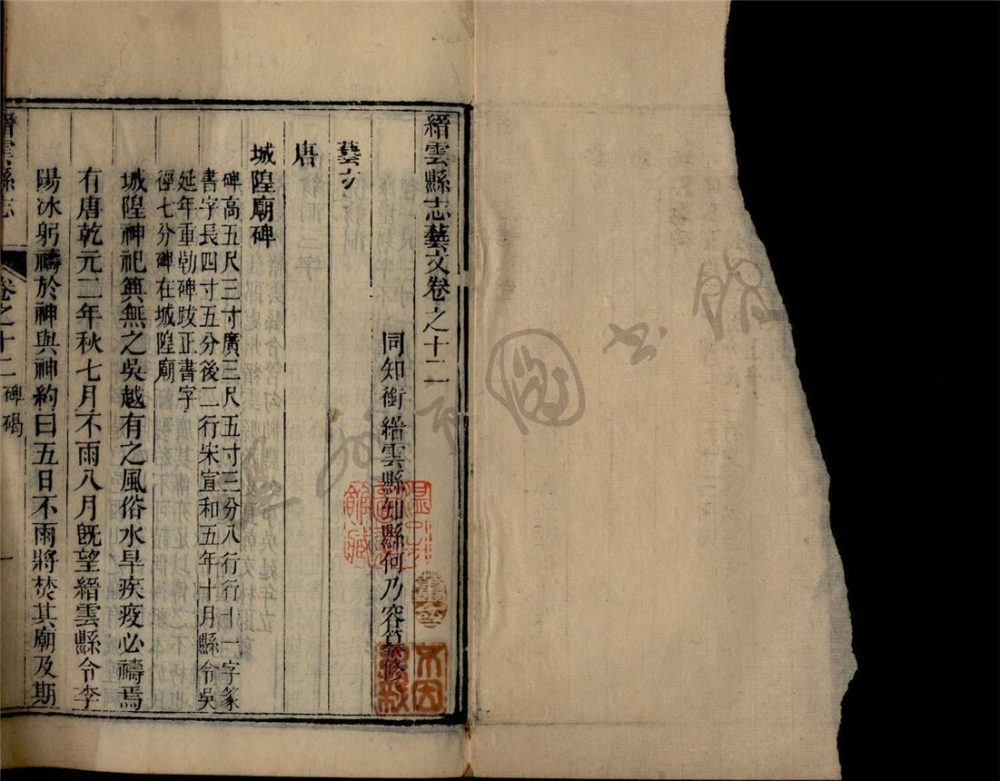 縉雲縣志藝文卷之十二
同知銜縉雲縣知縣何乃容纂修
藝文
唐
城隍廟碑
碑高五尺三寸廣三尺五寸三分八行行十一字篆
書字長四寸五分後二行宋宣和五年十月縣令吳
延年重勒碑跋正書字
徑七分碑在城隍廟
城隍神祀典無之吳越有之風俗水旱疾疫必禱焉
有唐乾元二年秋七月不雨八月旣望縉雲縣令李
陽冰躬禱於神與神約曰五日不雨將焚其廟及期
縉雲縣志
卷之十二
碑碣
一